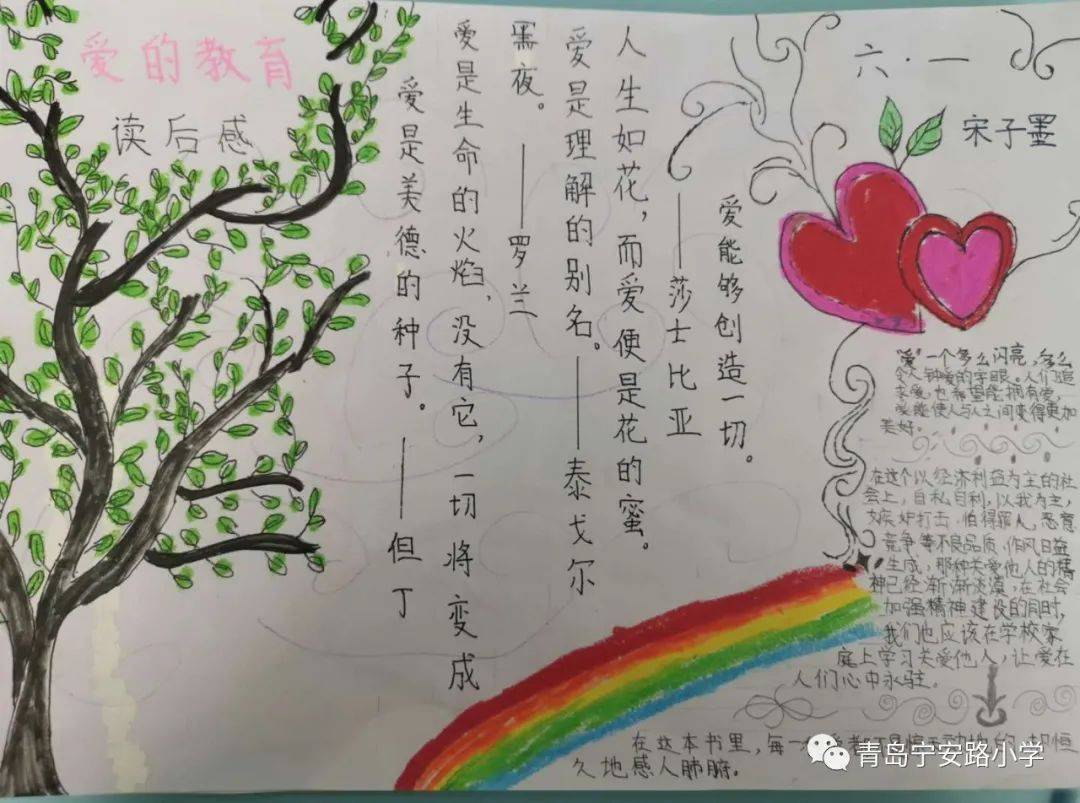 爱的教育
读后感
爱是美德的种子。——但丁
爱是生命的火焰，没有它，一切将变成
黑夜。——罗兰
爱是理解的别名。——泰戈尔
人生如花，而爱便是花的蜜。
——莎士比亚
爱能够创造一切。
六·一
宋子墨
“爱”一个多么闪亮，多么
令人钟爱的字眼。人们追
求爱，也希望能拥有爱，
爱能使人与人之间变得更加
美好。
在这个以经济利益为主的社
会上，自私自利，以我为主，
嫉妒打击，怕得罪人，恶意
竞争等不良品质、作风日益
生成，那种关爱他人的精
神已经渐渐淡漠，在社会
加强精神建设的同时，
我们也应该在学校家
庭上学习关爱他人，让爱在
人们心中永驻。
在这本书里，每一
久地感人肺腑。
青岛宁安路小学